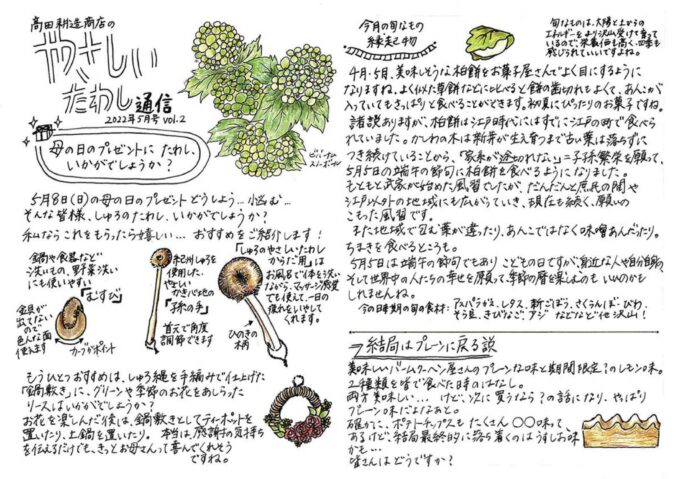 髙田耕造商店の
やさしい
たわし通信
2022年5月号 vol.2
母の日のプレゼントに たわし、
いかがでしょうか？
ビバーナム
スノーボール
5月8日(日)の母の日のプレゼントどうしよう…悩む…
そんな皆様、しゅろのたわし、いかがでしょうか？
私ならこれをもらったら嬉しい… おすすめをご紹介します！
鍋や食器など
洗いもの、野菜洗い
にも使いやすい
「むすび」
金具が
出てない
ので
色んな面
使えます
カーブがポイント
紀州しゅろを
使用した
やさしい
かきごこ地の
「孫の手」
首元で角度
調節できます
「しゅろのやさしいたわし
からだ用」は
お風呂で体を洗い
ながら、マッサージ感覚
でも使えて、一日の
疲れをいやして
くれます。
ひのきの
柄
もうひとつおすすめは、しゅろ縄を手編みで仕上げた
「鍋敷き」に、グリーンや季節のお花をあしらった
リースはいかがでしょうか？
お花を楽しんだ後は、鍋敷きとしてティーポットを
置いたり、土鍋を置いたり。本当は、感謝の気持ち
を伝えるだけでも、きっとお母さんって喜んでくれそう
ですね。
今月の旬なもの
縁起物
旬なものは、太陽と土からの
エネルギーをより沢山受けて育って
いるので、栄養価も高く、四季も
感じられていいですよね。
4月・5月、美味しそうな柏餅をお菓子屋さんでよく目にするように
なりますね。よく似た草餅などに比べると餅の歯切れもよくて、あんこが
入っていてもさっぱりと食べることができます。初夏にぴったりのお菓子ですね。
諸説ありますが、柏餅は江戸時代にはすでに江戸の町で食べら
れていました。かしわの木は新芽が生え育つまで古い葉は落ちずに
つき続けていることから、「家系が途切れない」=子孫繁栄を願って、
5月5日の端午の節句に柏餅を食べるようになりました。
もともと武家が始めた風習でしたが、だんだんと庶民の間や
江戸以外の地域にも広がっていき、現在も続く、願いの
こもった風習です。
また地域で包む葉が違ったり、あんこではなく味噌あんだったり。
ちまきを食べるところも。
5月5日は端午の節句でもあり こどもの日ですが、身近な人や自分自身の、
そして世界中の人たちの幸せを願って、季節の暦を楽しむのも いいのかも
しれませんね。
今の時期の旬の食材: アスパラガス、レタス、新ごぼう、さくらんぼ、びわ、
そら豆、きびなご、アジ などなど他沢山！
→結局はプレーンに戻る説
美味しいバームクーヘン屋さんのプレーンな味と期間限定?のレモン味。
2種類を皆で食べた時のはなし。
両方美味しい… けど、次に買うなら？の話になり、やっぱり
プレーン味だよなあと。
確かに、ポテトチップスも たくさん〇〇味って、
あるけど、結局最終的に落ち着くのはうすしお味
かも…
皆さんはどうですか？